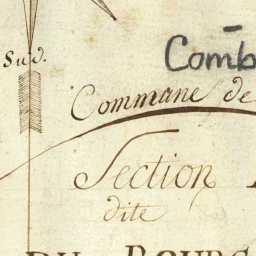 Sud.
Comb
Commune de
Section
dite
DU BOURG